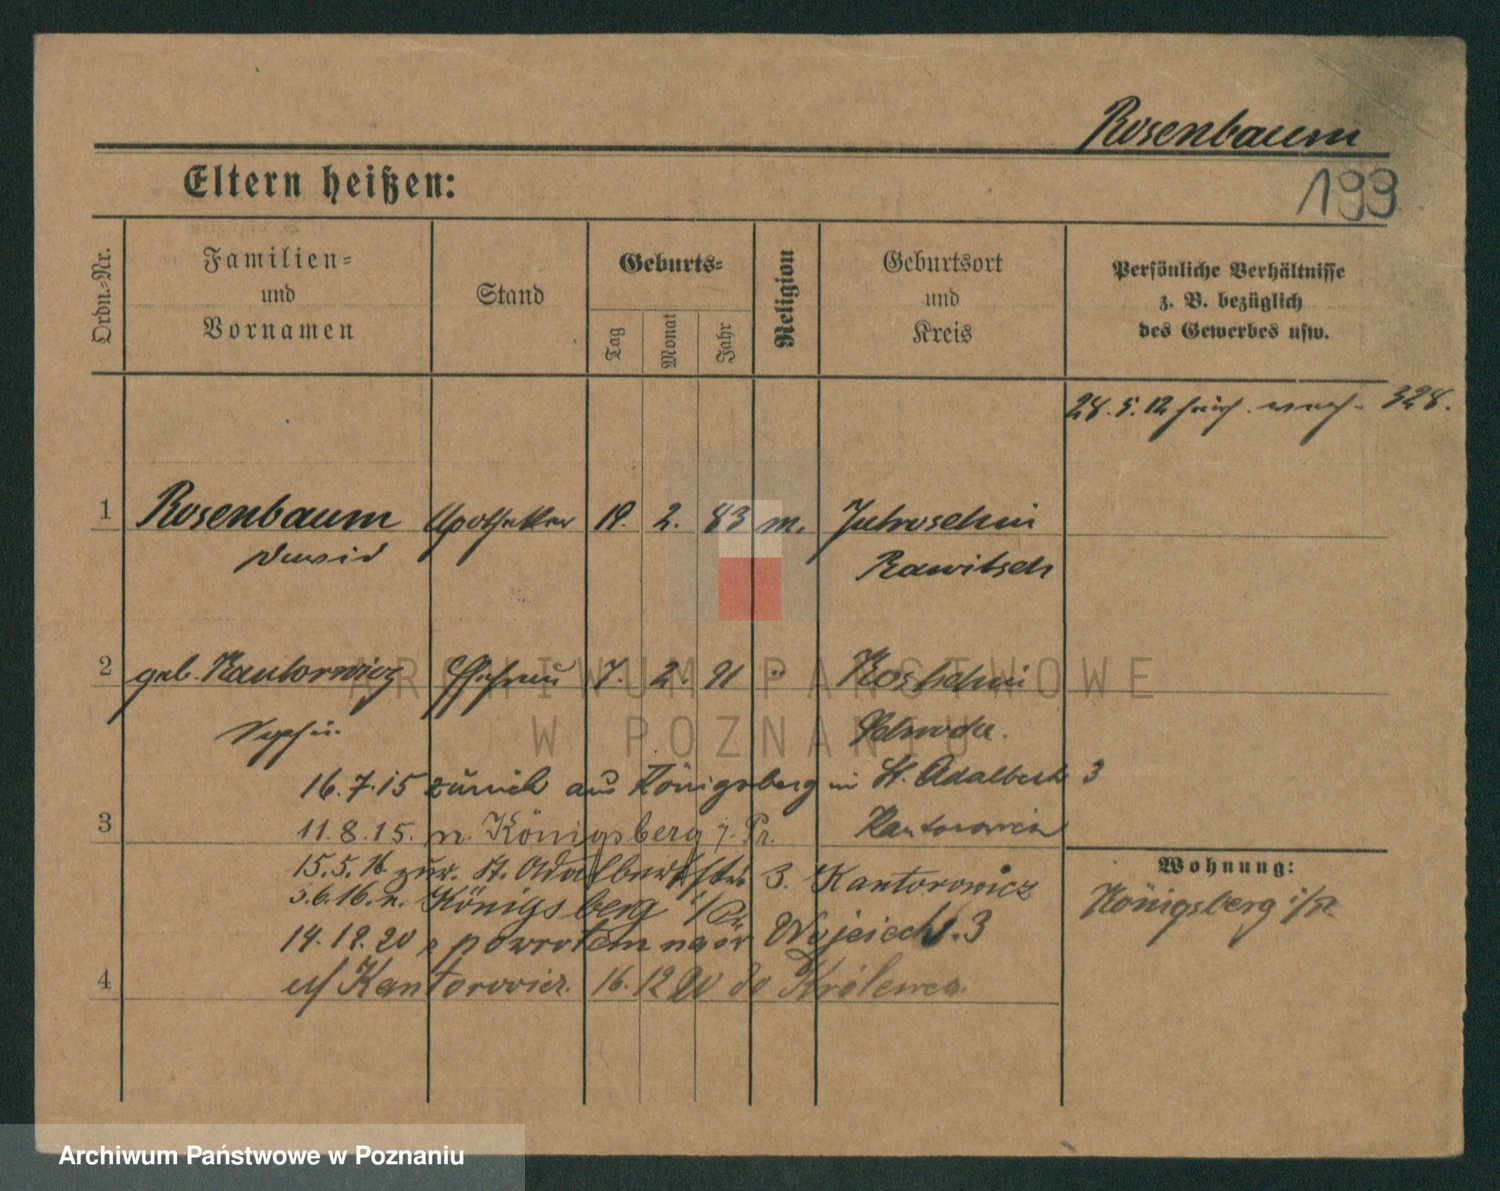 Rosenbaum
199
Eltern heißen:
Ordn.-Nr.
Familien-
und
Vornamen
Stand
Geburts-
Tag
Monat
Jahr
Religion
Geburtsort
und
Kreis
Persönliche Verhältnisse
z. B. bezüglich
des Gewerbes usw.
28. 5. 12 328.
1 Rosenbaum Apotheker 19. 2. 83 m. Jutroschin
David Rawitsch
2 geb. Kantorowicz Ehefrau 7. 2. 91 " Kostschin
Sophie Schroda.
16.7.15 zurück aus Königsberg in St. Adalbert 3
3 11.8.15. n. Königsberg i. Pr. Kantorowicz
15.5.16. zur. St. Adalbertstr. 3. Kantorowicz
3.6.16. n. Königsberg i/Pr
14.12.20 z powrotem na św Wojciech. 3
4 u/ Kantorowicz. 16.12 20 do Królewca.
Wohnung:
Königsberg i/Pr.
ARCHIWUM PAŃSTWOWE
W POZNANIU
Archiwum Państwowe w Poznaniu